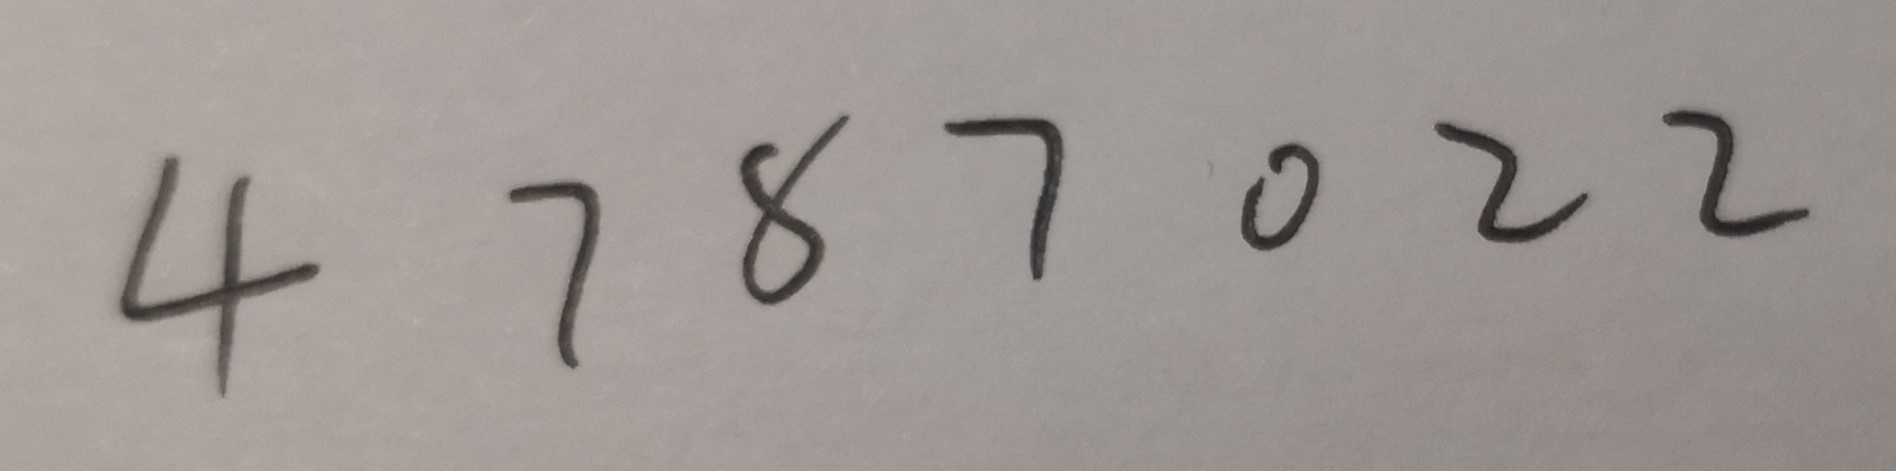 4 7 8 7 0 2 2